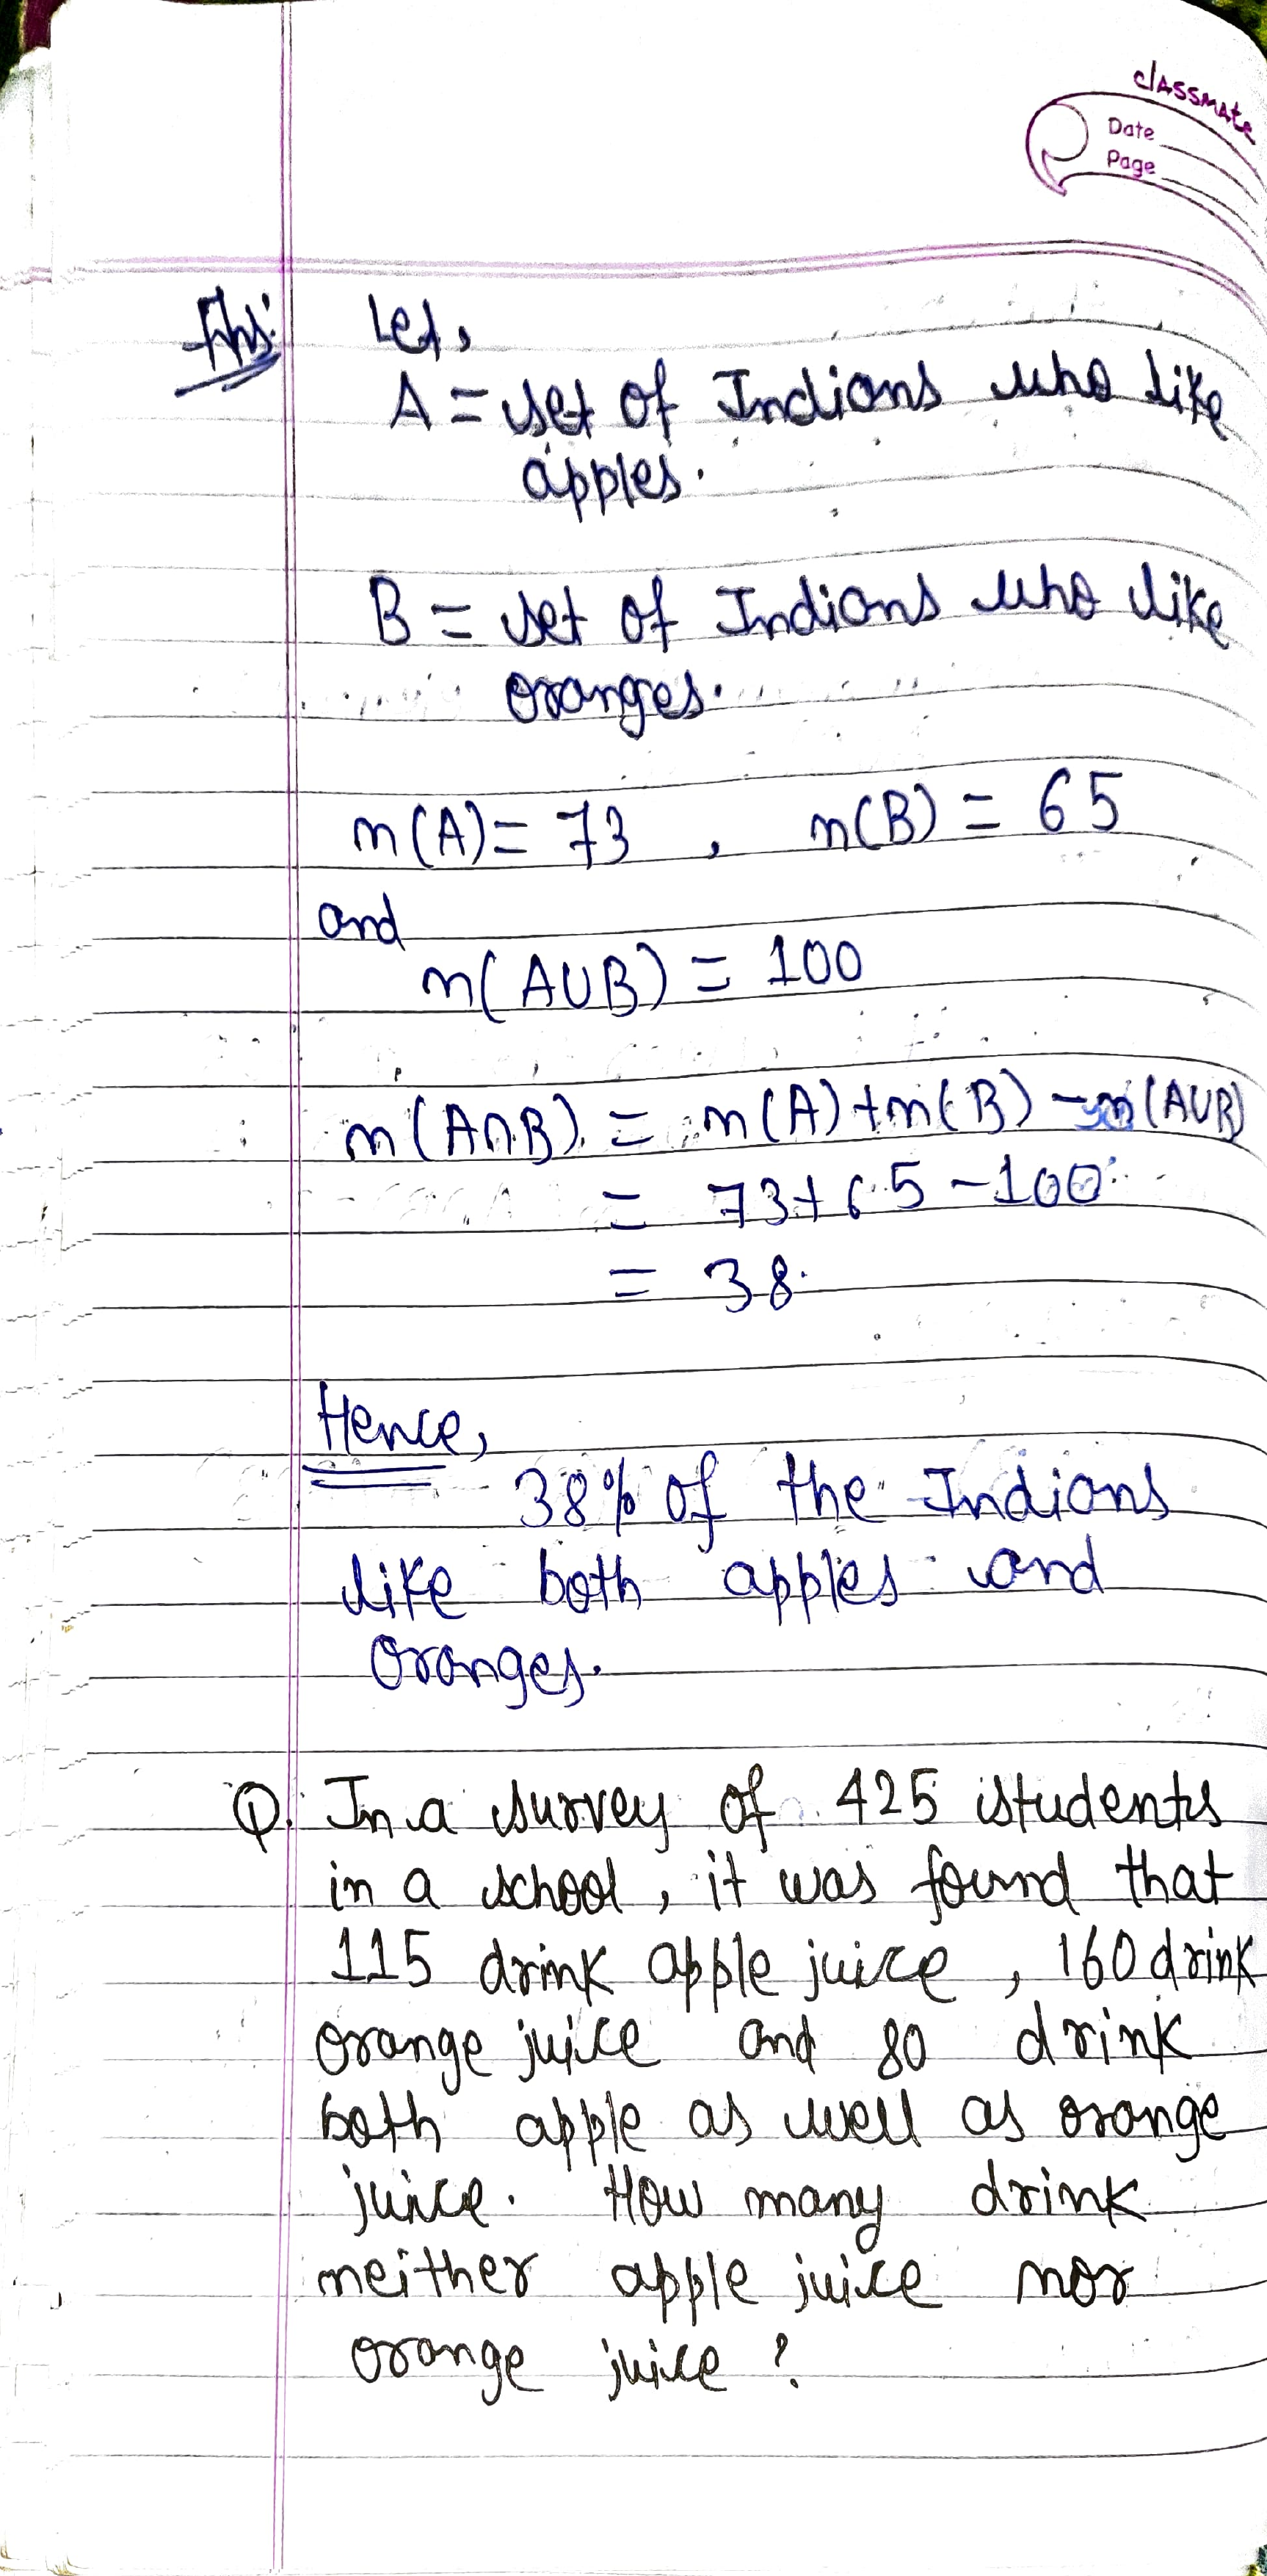 classmate
Date
Page
Ans: Let,
A = set of Indians who like
apples.
B = set of Indians who like
oranges.
n(A) = 73 , n(B) = 65
and
n(A∪B) = 100
n(A∩B) = n(A) + n(B) - n(A∪B)
= 73 + 65 - 100
= 38.
Hence,
38% of the Indians
like both apples and
oranges.
Q. In a survey of 425 students
in a school, it was found that
115 drink apple juice, 160 drink
orange juice and 80 drink
both apple as well as orange
juice. How many drink
neither apple juice nor
orange juice?